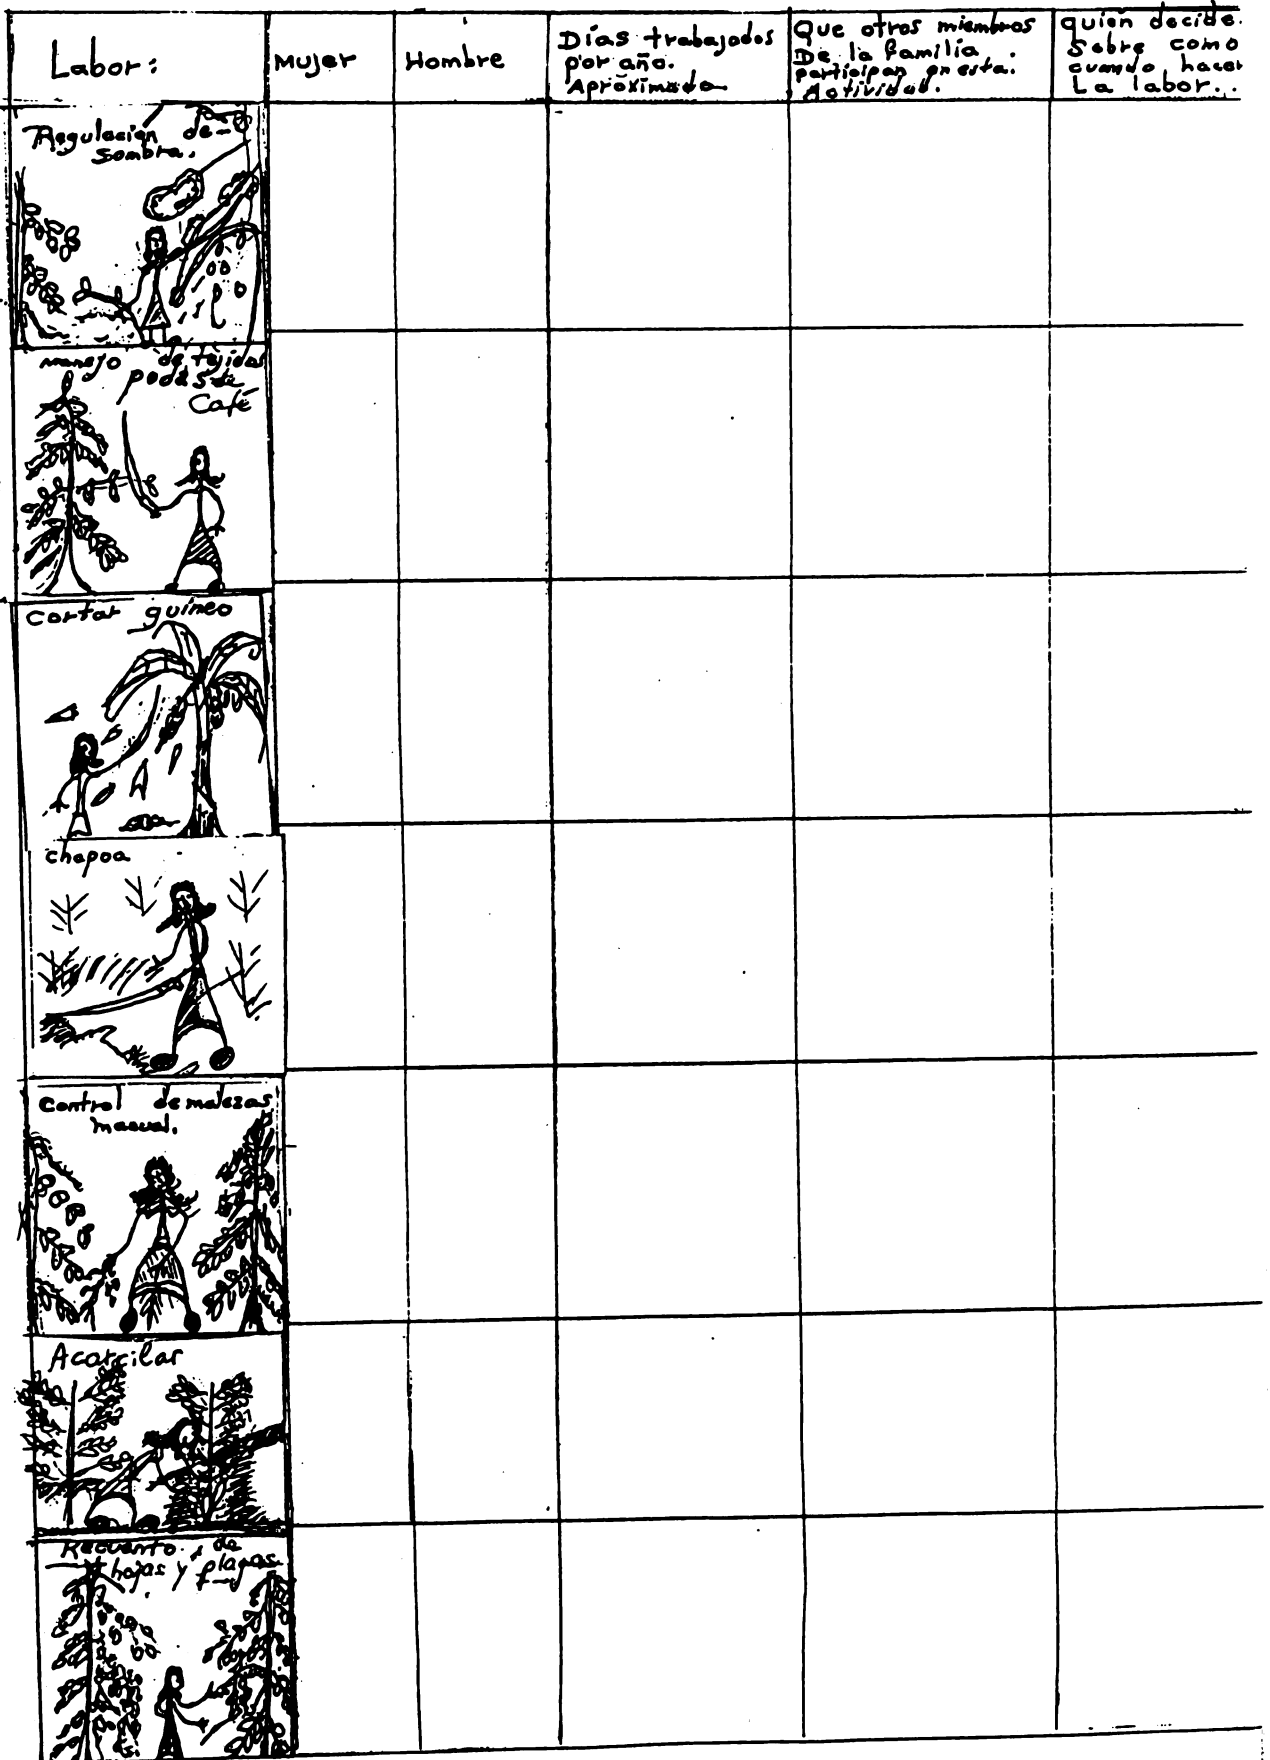 Labor:
Mujer
Hombre
Días trabajados
por año.
Aproximado
Que otros miembros
De la familia
participan en esta.
Actividad.
quien decide.
Sobre como
cuando hacer
La labor..
Regulacion de
sombra.
manejo de tejidos
podas de
Café
Cortar guineo
chapoa
Control de malezas
manual.
Acarrilar
Recuento de
hojas y plagas